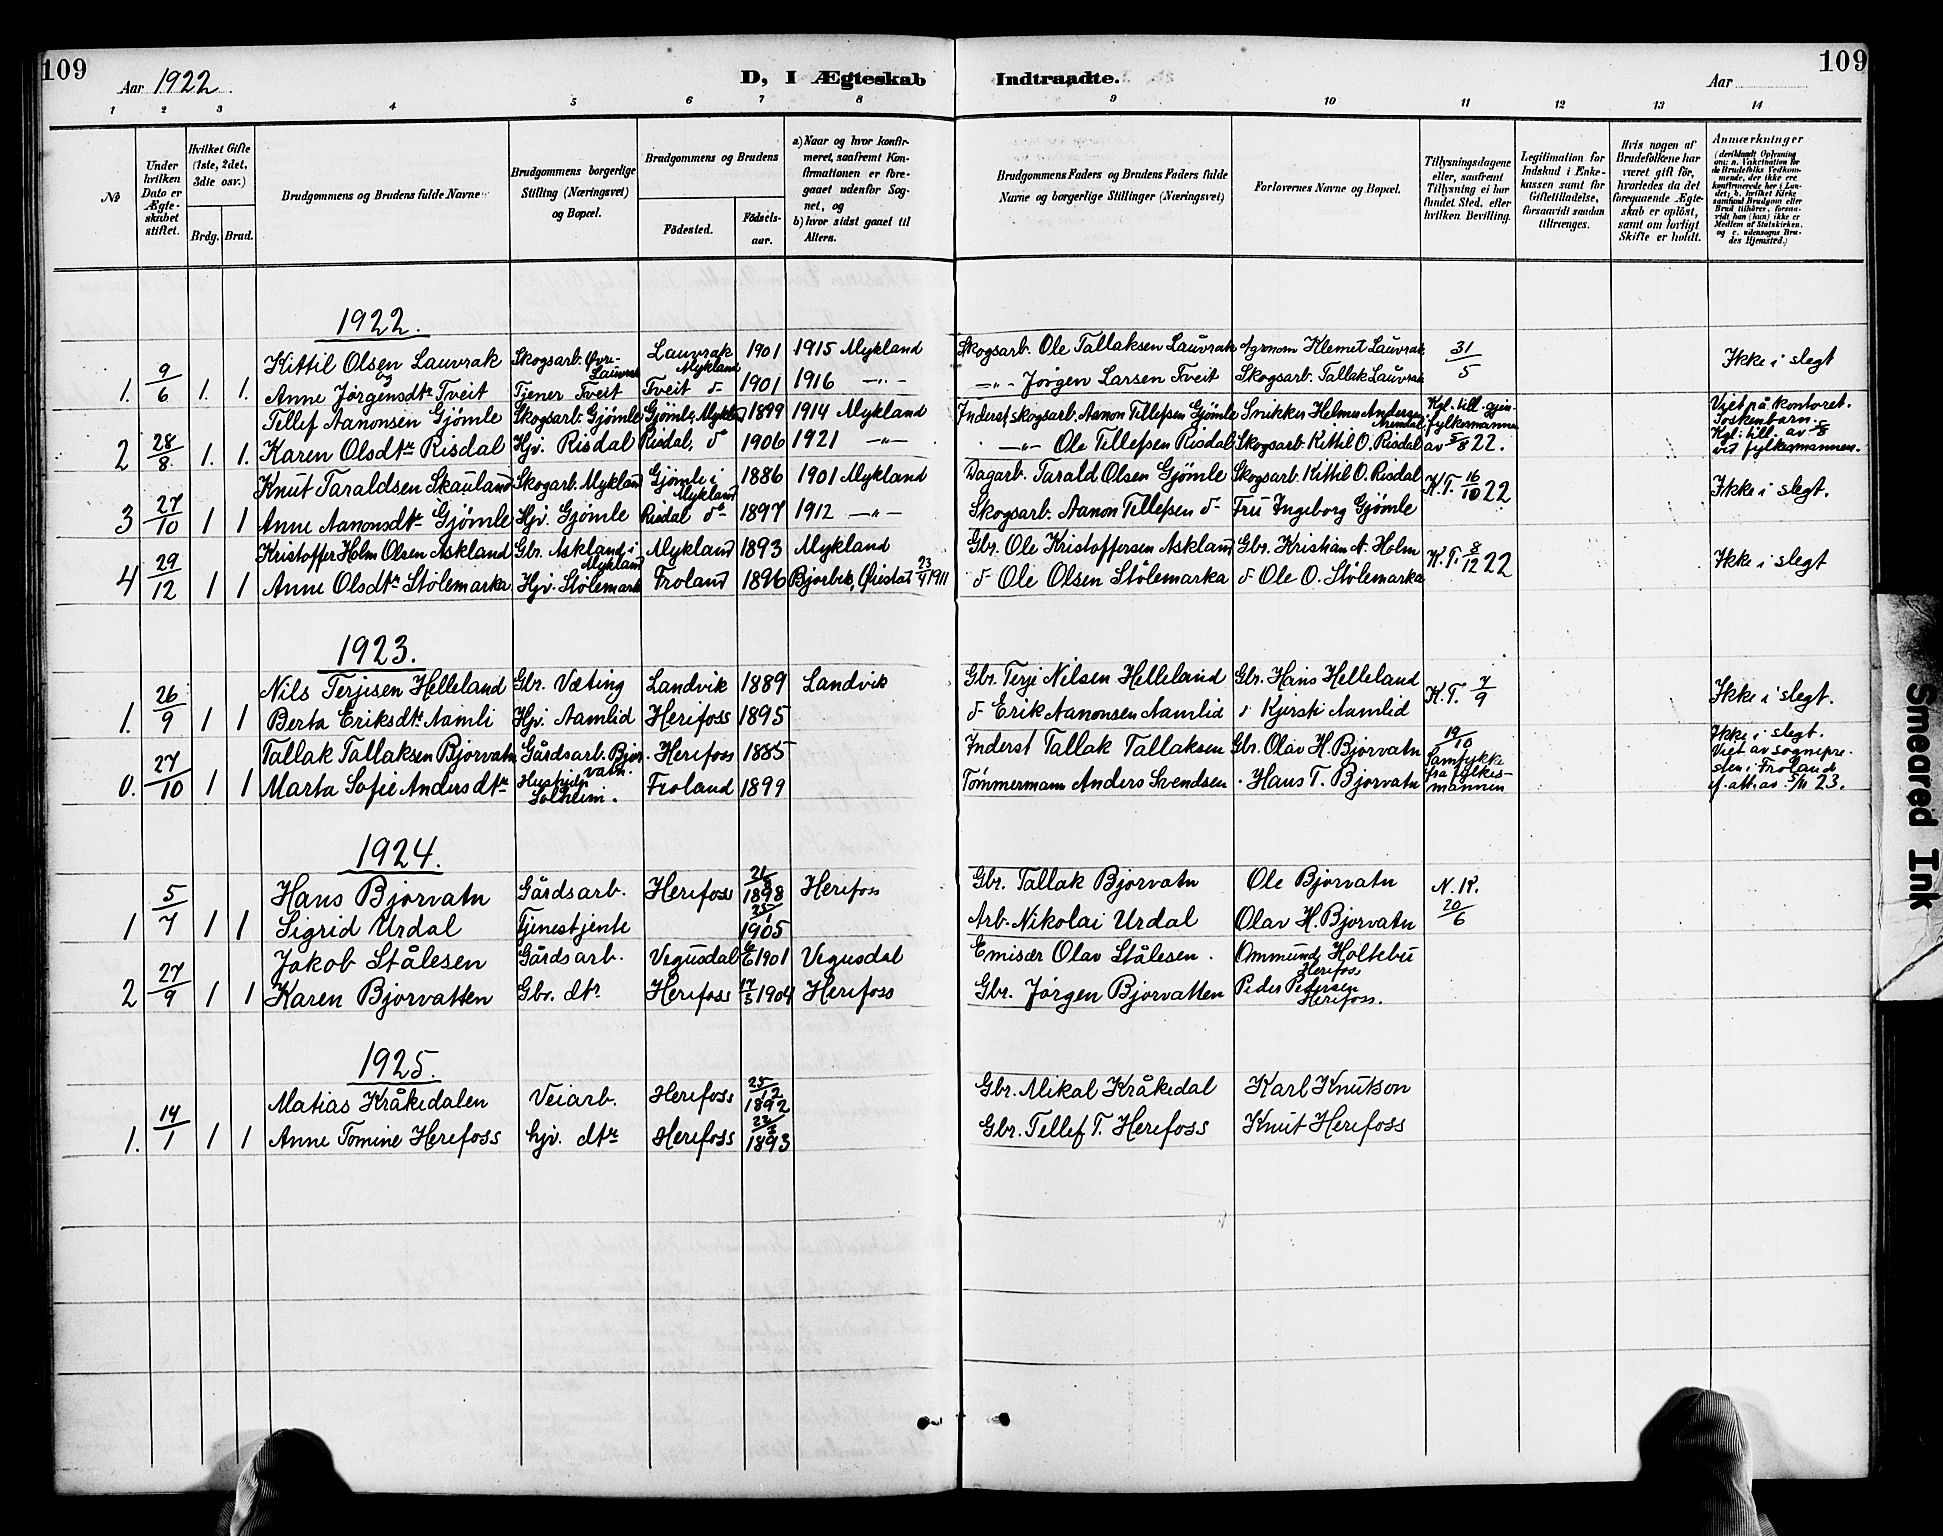 109
Aar 1922.
D, I Ægteskab Indtraadte.
Aar
109
1 2 3 4 5 6 7 8 9 10 11 12 13 14
№
Under hvilken Dato er Ægteskabet stiftet.
Hvilket Gifte (1ste, 2det, 3die osv.)
Brdg. Brud.
Brudgommens og Brudens fulde Navne
Brudgommens borgerlige Stilling (Næringsvei) og Bopæl.
Brudgommens og Brudens
Födested.
Födselsaar.
a) Naar og hvor konfirmeret, saafremt Konfirmationen er foregaaet udenfor Sognet, og
b) hvor sidst gaaet til Alters.
Brudgommens Faders og Brudens Faders fulde Navne og borgerlige Stillinger (Næringsvei)
Forlovernes Navne og Bopæl.
Tillysningsdagene eller, saafremt Tillysning ei har fundet Sted, efter hvilken Bevilling.
Legitimation for Indskud i Enkekassen samt for Giftetilladelse, forsaavidt saadan tiltrænges.
Hvis nogen af Brudefolkene har været gift för, hvorledes da det foregaaende Ægteskab er oplöst, samt om lovligt Skifte er holdt.
Anmærkninger
(deriblandt Oplysning om: a. Vakcination for de Brudefolks Vedkommende, der ikke ere konfirmerede her i Landet; b. hvilket Kirkesamfund Brudgom eller Brud tilhörer, forsaavidt han (hun) ikke er Medlem af Statskirken, og c. udensogns Brudes Hjemsted.)
1922.
Kittil Olsen Lauvrak Skogsarb. Øvre-Lauvrak Lauvrak Mykland 1901 1915 Mykland Skogsarb. Ole Tallaksen Lauvrak Agronom Klemet Lauvrak 31/5 Ikke i slegt
1. 9/6 1. 1. og Anne Jørgensdtr Tveit Tjener Tveit Tveit d 1901 1916 —"— —"— Jørgen Larsen Tveit Skogsarb. Tallak Lauvrak
Tellef Aanonsen Gjömle Skogsarb. Gjömle Gjömle, Mykland 1899 1914 Mykland Inderst, skogsarb. Aanon Tellefsen Gjömle Snikker Helmer Andersen Arendal Kgl. till. gjen. fylkesmannen av 5/8 22. Viet på kontoret. Søskenbarn. Kgl. till. av 5/8 ved fylkesmannen.
2 28/8. 1. 1. Karen Olsdtr Risdal Hjv. Risdal Risdal, d 1906 1921 —"— —"— Ole Tellefsen Risdal Skogsarb. Kittil O. Risdal
Knut Taraldsen Skauland Skogarb. Mykland Gjömle i Mykland 1886 1901 Mykland Dagarb. Tarald Olsen Gjömle Skogsarb. Kittil O. Risdal K.T. 16/10 22 Ikke i slegt.
3 27/10 1 1 Anne Aanonsdtr Gjömle Hjv. Gjömle Risdal do 1897 1912 —"— Skogsarb. Aanon Tellefsen d Fru Ingeborg Gjömle
Kristoffer Holm Olsen Askland Gbr. Askland i Mykland Mykland 1893 Mykland Gbr. Ole Kristoffersen Askland Gbr. Kristian A. Holm K.T. 8/12 22 Ikke i slegt
4 29/12 1 1 Anne Olsdtr Stölemarka Hjv. Stölemark Froland 1896 Bjorbek, Öiestad 23/4 1911 d Ole Olsen Stölemarka d Ole O. Stölemarka
1923.
Nils Terjesen Helleland Gbr. Væting Landvik 1889 Landvik Gbr. Terje Nilsen Helleland Gbr. Hans Helleland K.T. 7/9 Ikke i slegt.
1. 26/9 1 1 Berta Eriksdtr Aamli Hjv. Aamlid Herefoss 1895 d Erik Aanonsen Aamlid d Kjersti Aamlid
Tallak Tallaksen Bjorvatn Gårdsarb. Bjorvatn. Herefoss 1885 Inderst Tallak Tallaksen Gbr. Olav H. Bjorvatn 19/10 Samtykke fra fylkesmannen Ikke i slegt. Viet av sognepresten i Froland ef. att. av 5/11 23.
0. 27/10 1 1 Marta Sofie Andersdtr Hushjelp Solheim. Froland 1899 Tömmermann Anders Svendsen . Hans T. Bjorvatn
1924.
Hans Bjorvatn Gårdsarb. Herefoss 21/8 1898 Herefoss Gbr. Tallak Bjorvatn Ole Bjorvatn N.K. 20/6
1 5/7 1 1 Sigrid Urdal Tjenestjente 25/1 1905 Arb. Nikolai Urdal Olav H. Bjorvatn
Jakob Stålesen Gårdsarb. Vegusdal 6/6 1901 Vegusdal Emisær Olav Stålesen. Ommund Holtebu Herefoss
2 27/9 1 1 Karen Bjorvatten Gbr. dtr. Herefoss 17/5 1904 Herefoss Gbr. Jørgen Bjorvatten Peder Pedersen Herefoss.
1925.
Matias Kråkedalen Veiarb. Herefoss 25/12 1892 Gbr. Mikal Kråkedal Karl Knutson
1. 14/1 1 1 Anne Tomine Herefoss hjv. dtr Herefoss 1893 Gbr. Tellef T. Herefoss Knut Herefoss
Smeared Ink